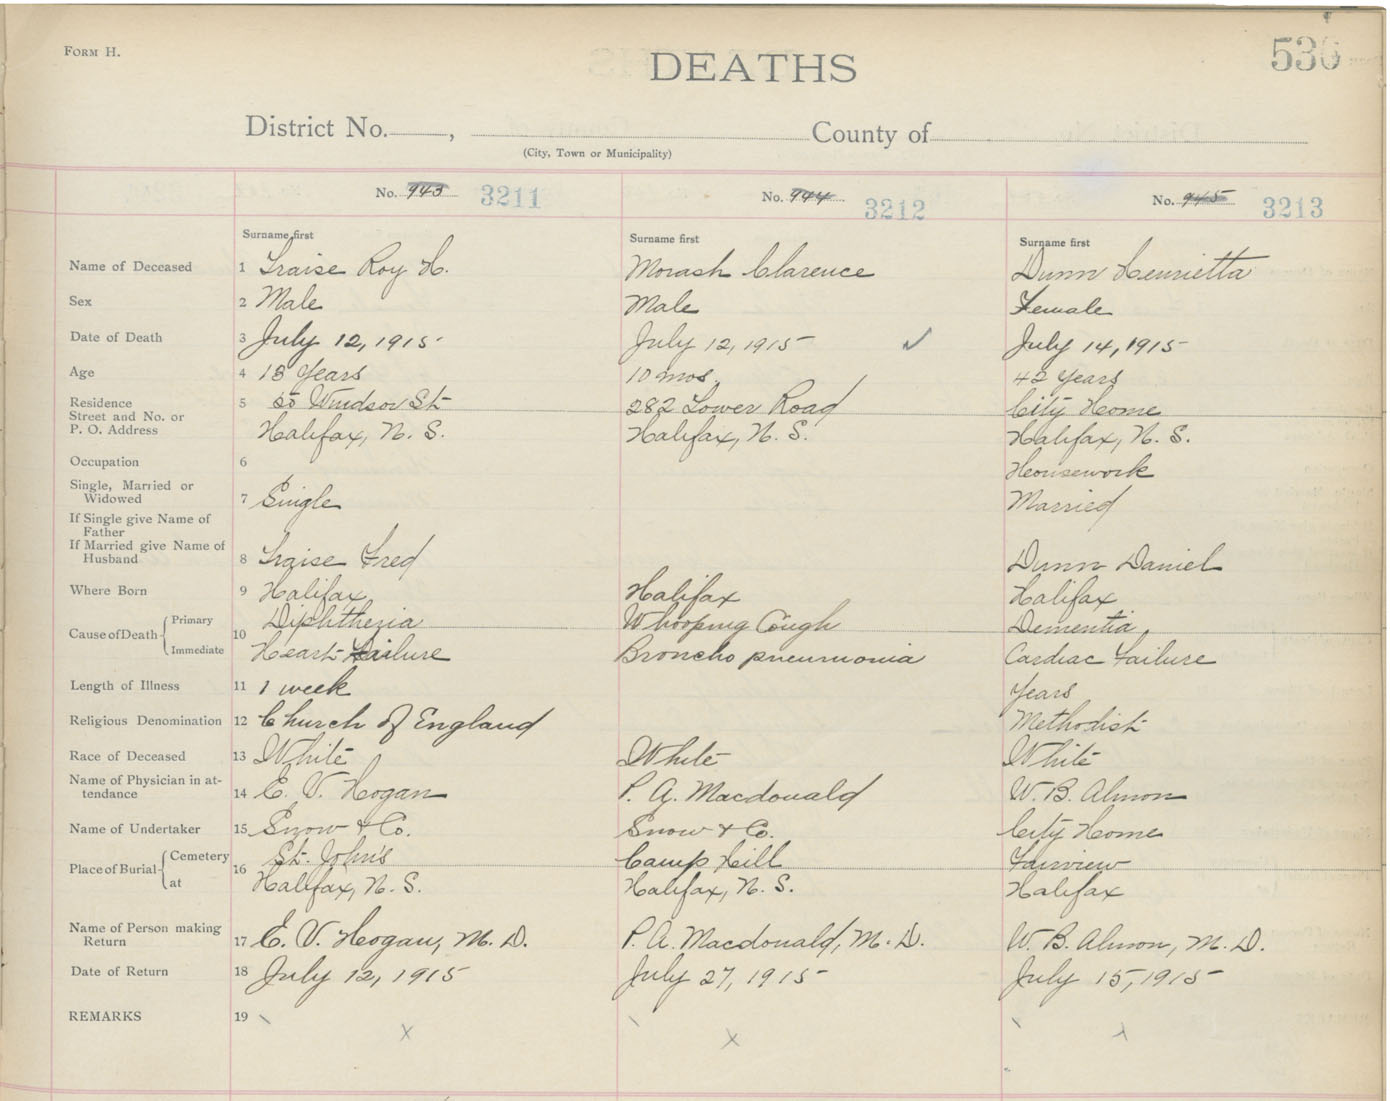 FORM H.
DEATHS
536
District No. , County of
(City, Town or Municipality)
No. 943 3211 No. 944 3212 No. 945 3213
Surname first Surname first Surname first
Name of Deceased 1 Traise Roy H. Morash Clarence Dunn Henrietta
Sex 2 Male Male Female
Date of Death 3 July 12, 1915 July 12, 1915 ✓ July 14, 1915
Age 4 18 Years 10 mos. 42 Years
Residence Windsor St 282 Lower Road City Home
Street and No. or 5
P. O. Address Halifax, N. S. Halifax, N. S. Halifax, N. S.
Occupation 6 Housework
Single, Married or
Widowed 7 Single Married
If Single give Name of
Father
If Married give Name of
Husband 8 Traise Fred Dunn Daniel
Where Born 9 Halifax Halifax Halifax
Cause of Death Primary 10 Diphtheria Whooping Cough Dementia
Immediate Heart Failure Broncho pneumonia Cardiac Failure
Length of Illness 11 1 week Years
Religious Denomination 12 Church of England Methodist
Race of Deceased 13 White White White
Name of Physician in at-
tendance 14 E. V. Hogan P. A. Macdonald W. B. Almon
Name of Undertaker 15 Snow & Co. Snow & Co. City Home
Place of Burial Cemetery 16 St. John's Camp Hill Fairview
at Halifax, N. S. Halifax, N. S. Halifax
Name of Person making
Return 17 E. V. Hogan, M. D. P. A. Macdonald, M. D. W. B. Almon, M. D.
Date of Return 18 July 12, 1915 July 27, 1915 July 15, 1915
REMARKS 19
x x x